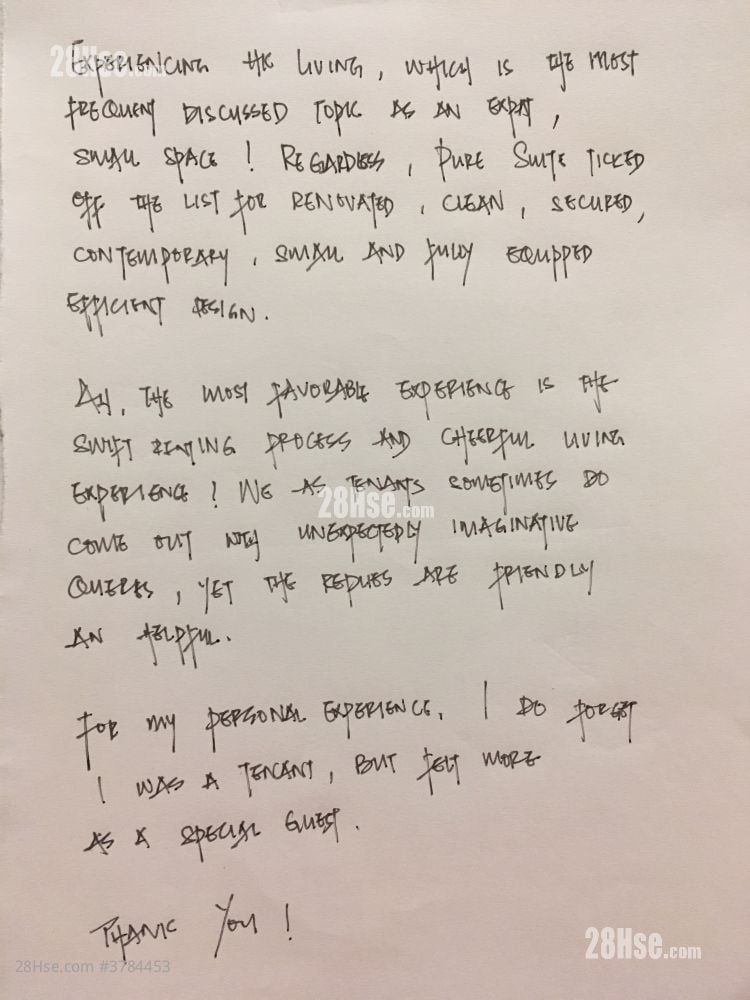 28Hse.com
EXPERIENCING HK LIVING, WHICH IS THE MOST
FREQUENT DISCUSSED TOPIC AS AN EXPAT,
SMALL SPACE! REGARDLESS, PURE SUITE TICKED
OFF THE LIST FOR RENOVATED, CLEAN, SECURED,
CONTEMPORARY, SMALL AND FULLY EQUIPPED
EFFICIENT DESIGN.
AH, THE MOST FAVORABLE EXPERIENCE IS THE
SWIFT RENTING PROCESS AND CHEERFUL LIVING
EXPERIENCE! WE AS TENANTS SOMETIMES DO
28Hse.com
COME OUT WITH UNEXPECTEDLY IMAGINATIVE
QUERIES, YET THE REPLIES ARE FRIENDLY
AN HELPFUL.
FOR MY PERSONAL EXPERIENCE, I DO FORGET
I WAS A TENANT, BUT FELT MORE
AS A SPECIAL GUEST.
THANK YOU!
28Hse.com
28Hse.com #3784453